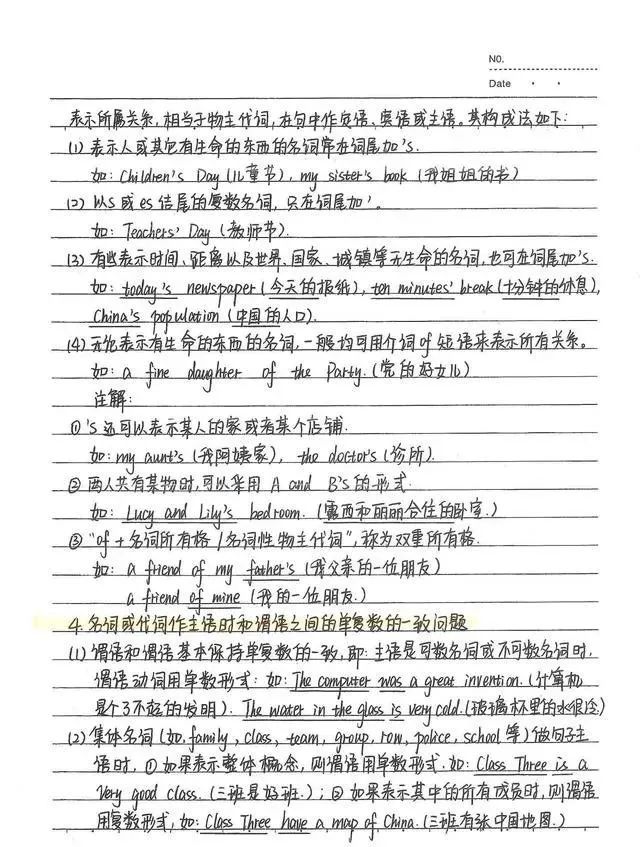 NO.
Date
表示所属关系,相当于物主代词,在句中作定语、宾语或主语。其构成法如下:
(1) 表示人或其它有生命的东西的名词常在词尾加's.
如: Children's Day (儿童节), my sister's book (我姐姐的书)
(2) 以s 或es 结尾的复数名词,只在词尾加'.
如: Teachers' Day (教师节).
(3) 有些表示时间、距离以及世界、国家、城镇等无生命的名词,也可在词尾加's.
如: today's newspaper (今天的报纸), ten minutes' break (十分钟的休息),
China's population (中国的人口).
(4) 无论表示有生命的东西的名词,一般均可用介词of 短语来表示所有关系。
如: a fine daughter of the Party. (党的好女儿)
注解:
① 's 还可以表示某人的家或者某个店铺.
如: my aunt's (我阿姨家), the doctor's (诊所).
② 两人共有某物时,可以采用 A and B's 的形式.
如: Lucy and Lily's bedroom. (露西和丽丽合住的卧室.)
③ "of + 名词所有格 / 名词性物主代词", 称为双重所有格.
如: a friend of my father's (我父亲的一位朋友)
a friend of mine (我的一位朋友.)
4. 名词或代词作主语时和谓语之间的单复数的一致问题
(1) 谓语和谓语基本保持单复数的一致,即:主语是可数名词或不可数名词时,
谓语动词用单数形式: 如: The computer was a great invention. (计算机
是个了不起的发明). The water in the glass is very cold. (玻璃杯里的水很冷)
(2) 集体名词 (如, family, class, team, group, row, police, school 等) 做句子主
语时, ① 如果表示整体概念, 则谓语用单数形式. 如: Class Three is a
very good class. (三班是好班.) ; ② 如果表示其中的所有成员时,则谓语
用复数形式, 如: Class Three have a map of China. (三班有张中国地图.)